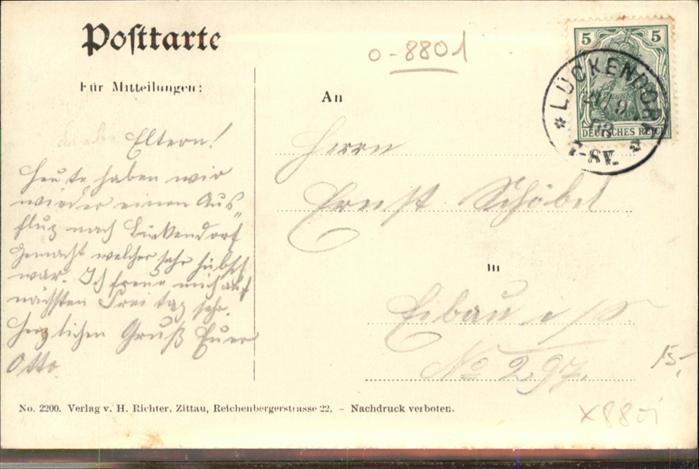 Postkarte
o-8801
Für Mitteilungen:
An
5 5
DEUTSCHES REICH
* LÜCKENDORF
7-8V.
Liebe Eltern!
Heute haben wir
wieder einen Aus-
flug nach Lückendorf
gemacht welcher sehr hübsch
war. Ich freue mich auf
nächsten Freitag sehr.
Herzlichen Gruß Euer
Otto.
Herrn
Ernst Schöbel
in
Eibau i/S
No 297.
15,-
x8801
No. 2200. Verlag v. H. Richter, Zittau, Reichenbergerstrasse 22. – Nachdruck verboten.